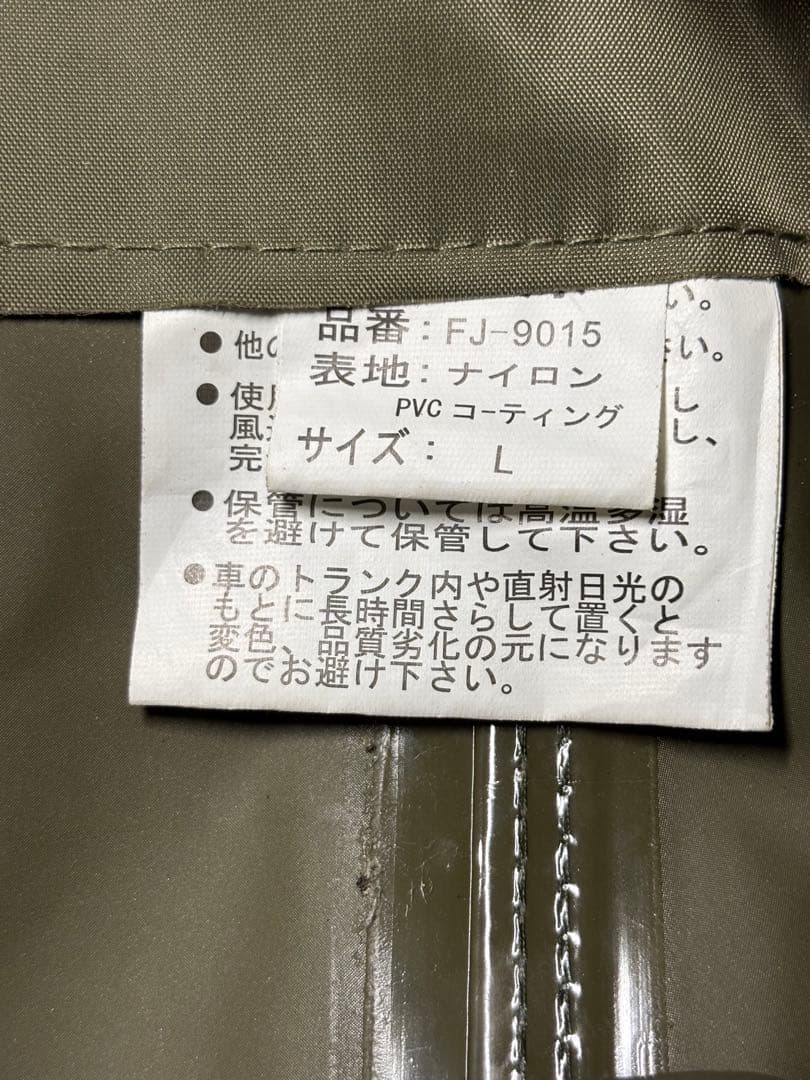 品番：FJ-9015
表地：ナイロン
PVC コーティング
サイズ： L
い。
●他の
い。
●使
し
風
し、
完
●保管については高温多湿
を避けて保管して下さい。
●車のトランク内や直射日光の
もとに長時間さらして置くと
変色、品質劣化の元になります
のでお避け下さい。